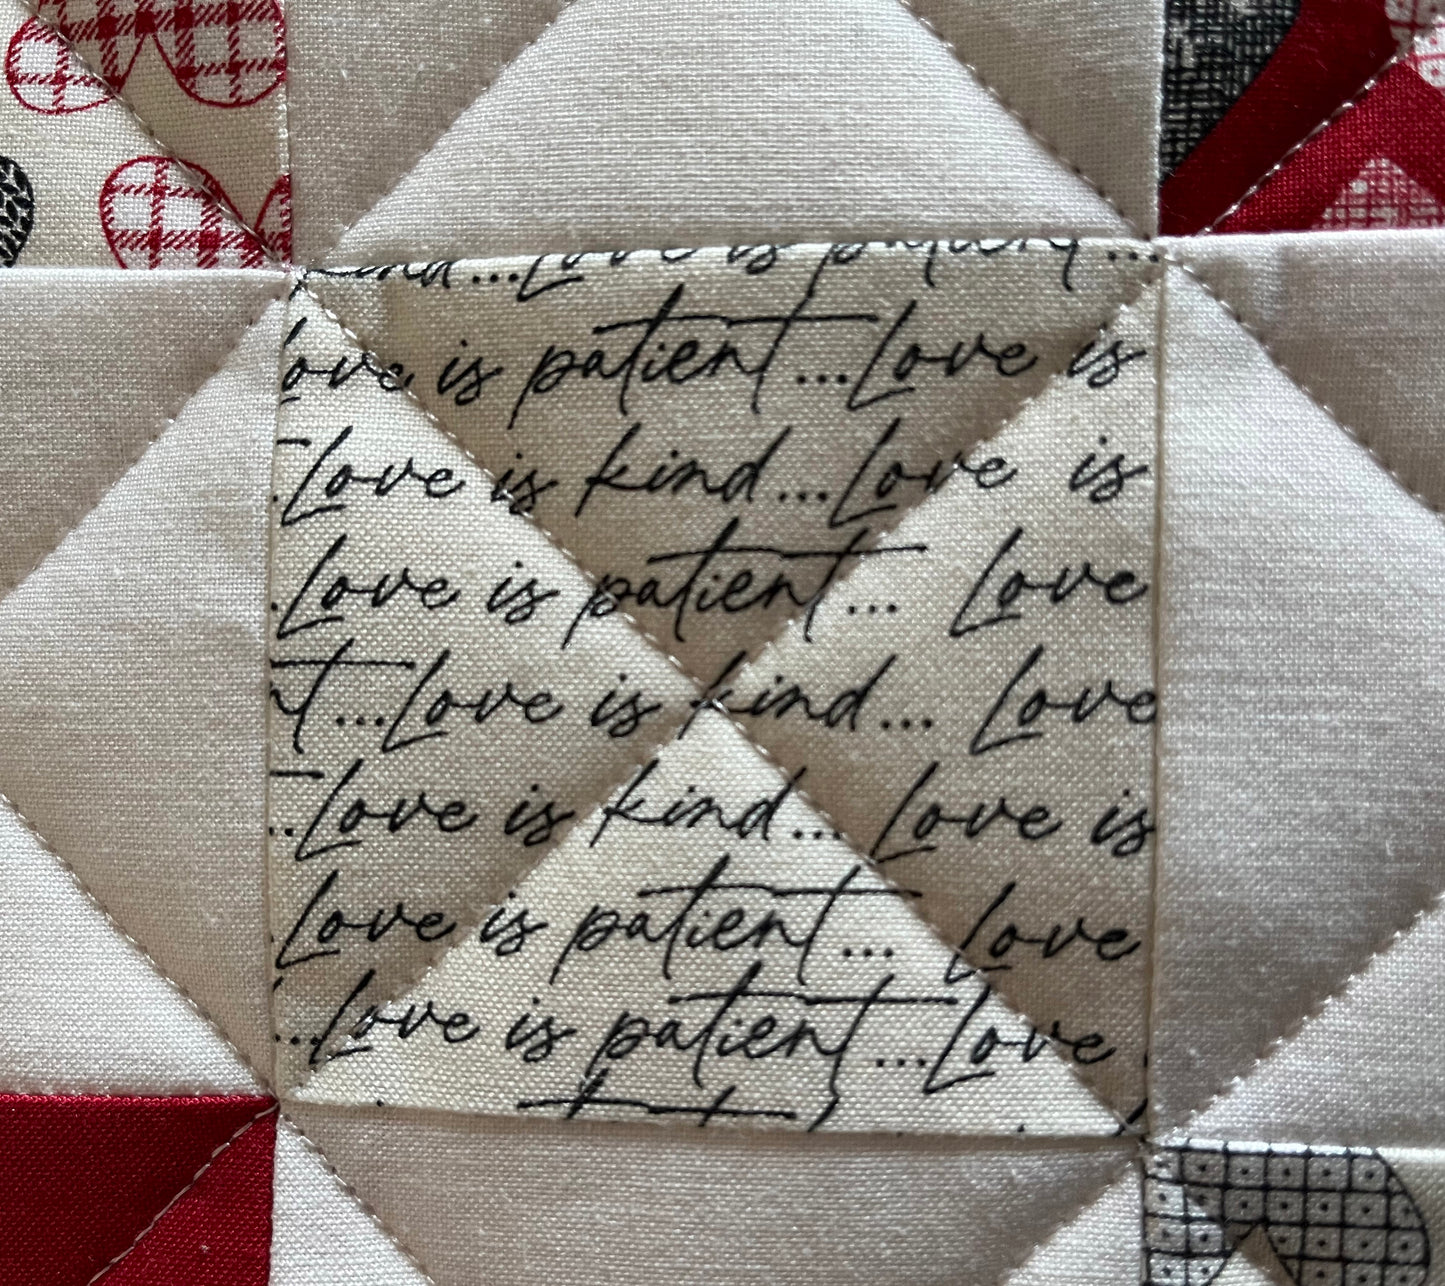 kind...Love is patient...
Love is patient...Love is
.Love is kind...Love is
.Love is patient... Love
nt...Love is kind... Love
..Love is kind... Love is
Love is patient... Love
...Love is patient...Love